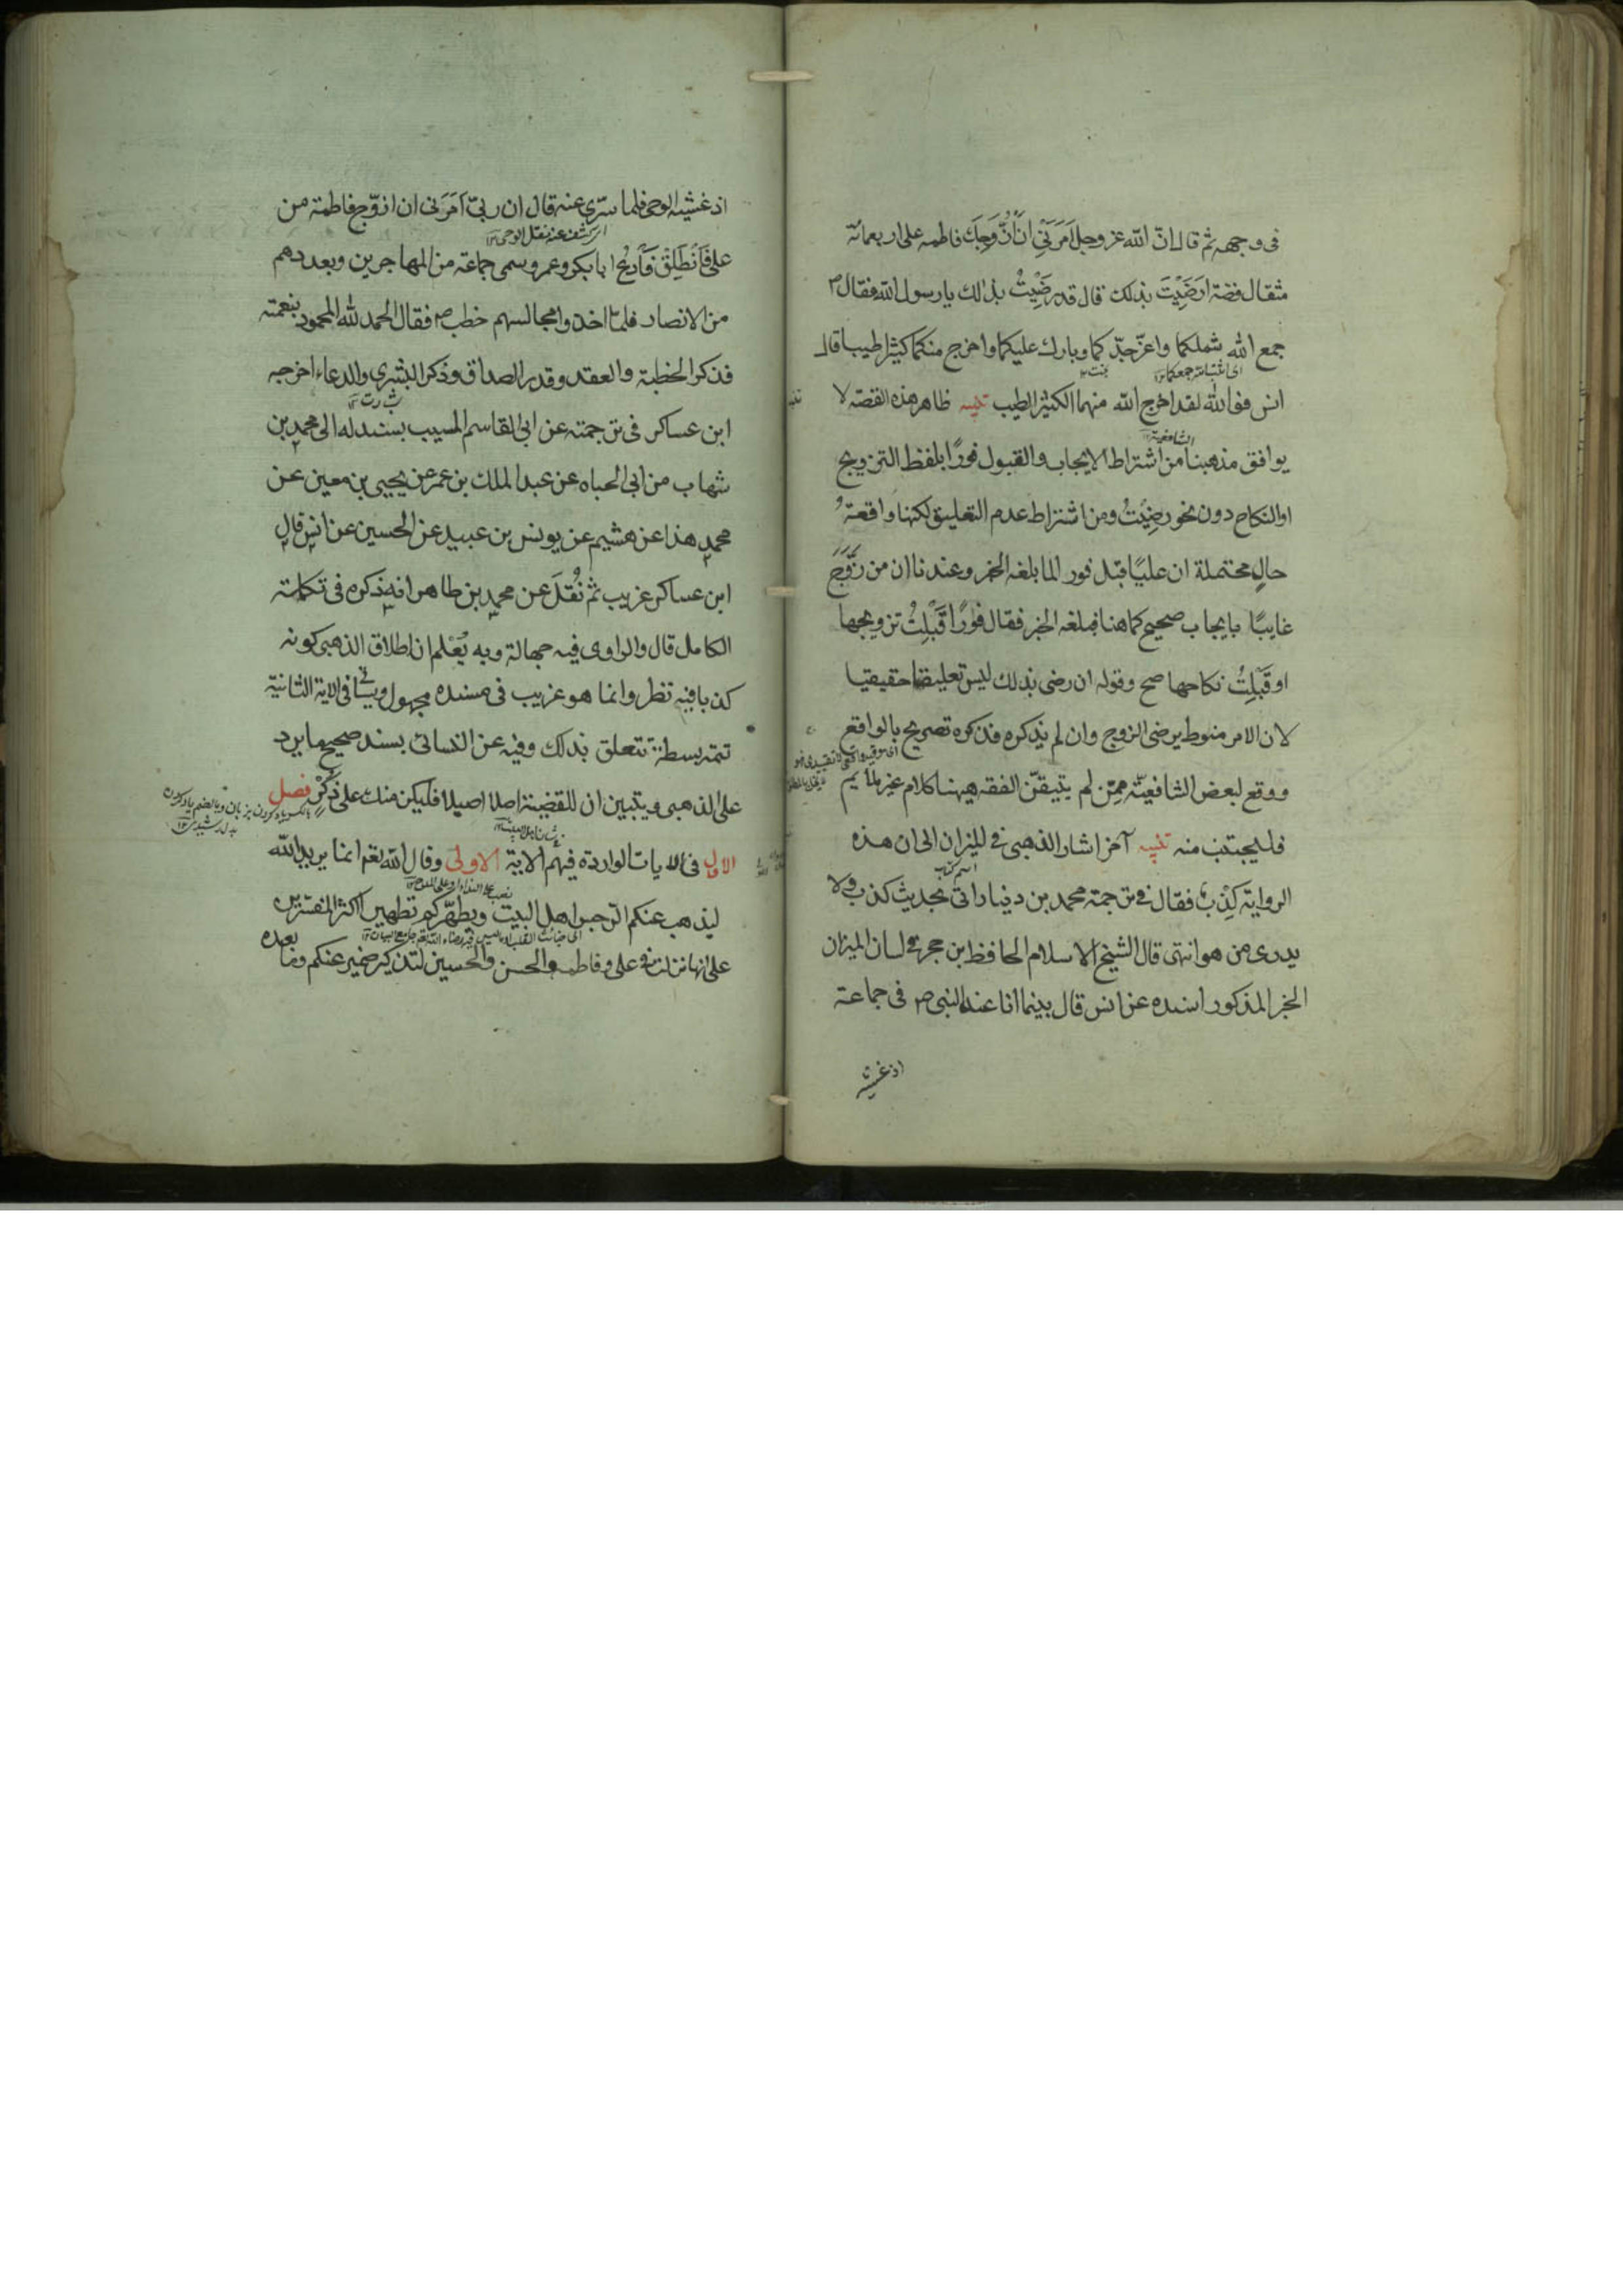 فى وجهه ثم قال ان الله عز وجل اَمَرَنِىْ اَنْ اُزَوِّجَكَ فاطمه على اربعمائة
مثقال فضة ارَضِيْتَ بذلك قال قد رضِيْتُ بذلك يا رسول الله فقال ص
جمع الله شملكما واعزّ جدّكما وبارك عليكما واخرج منكما كثيرا طيبا قال
انس فوالله لقد اخرج الله منهما الكثير الطيب تنبيه ظاهر هذه القصّة لا
الشافعية
يوافق مذهبنا من اشتراط الايجاب والقبول فورًا بلفظ التزويج
او النكاح دون نحو رضِيْتُ ومن اشتراط عدم التعليق لكنها واقعةُ
حالٍ محتملة ان عليًا قبل فورا لما بلغه الخبر وعندنا ان من زَوَّجَ
غايبًا بايجاب صحيح كما هنا فبلغه الخبر فقال فورًا قَبْلِتُ تزويجها
او قَبْلِتُ نكاحها صح وقوله ان رضى بذلك ليس تعليقا حقيقيا
لان الامر منوط برضى الزوج وان لم يذكره فذكره تصريح بالواقع
ووقع لبعض الشافعيّة ممن لم يتيقّن الفقه ههنا كلام غير ملايم
فليجتنب منه تنبيه آخر اشار الذهبى فى الميزان الى ان هذه
اسم كتاب
الرواية كِذْب فقال فى ترجمة محمد بن دينار اتى بحديث كذب ولا
يدرى من هو انتهى قال الشيخ الاسلام الحافظ ابن حجر فى لسان الميزان
الخبر المذكور اسنده عن انس قال بينما انا عند النبى ص فى جماعة
اذ غشيه
اذ غشيه الوحى فلما سرّى عنه قال ان ربّى اَمَرَنى ان ازوّج فاطمة من
على فَانْطَلِقْ فَادْعُ ابا بكر وعمر وسمى جماعة من المهاجرين وبعددهم
من الانصار فلما اخذوا مجالسهم خطب ص فقال الحمد لله المحمود بنعمته
فذكر الخطبة والعقد وقدر الصداق وذكر البشرى والدعاء اخرجه
ابن عساكر فى ترجمته عن ابى القاسم المسيب بسند له الى محمد بن
شهاب من ابى الحباه عن عبد الملك بن عمر عن يحيى بن معين عن
محمد هذا عن هشيم عن يونس بن عبيد عن الحسين عن انس قال
ابن عساكر غريب ثم نُقلَ عن محمد بن طاهر انه ذكره فى تكملة
الكامل قال والراوى فيه جهالة وبه يُعْلم ان اطلاق الذهبى كونه
كذبا فيه نظر وانما هو غريب فى مسنده مجهول وسياتى فى الاية الثانية
تتمه بسطة تتعلق بذلك وفيه عن النسائى بسند صحيح ما يرد
على الذهبى ويتبين ان للقضية اصلا اصيلا فليكن منك على ذُكْر فصل
الاول فى الايات الواردة فيهم الاية الاولى وقال الله تعم انما يريد الله
ليذهب عنكم الرجس اهل البيت ويطهركم تطهيرا اكثر المفسرين
على انها نزلت فى على وفاطمه والحسن والحسين لتذكير ضمير عنكم وما
بعده